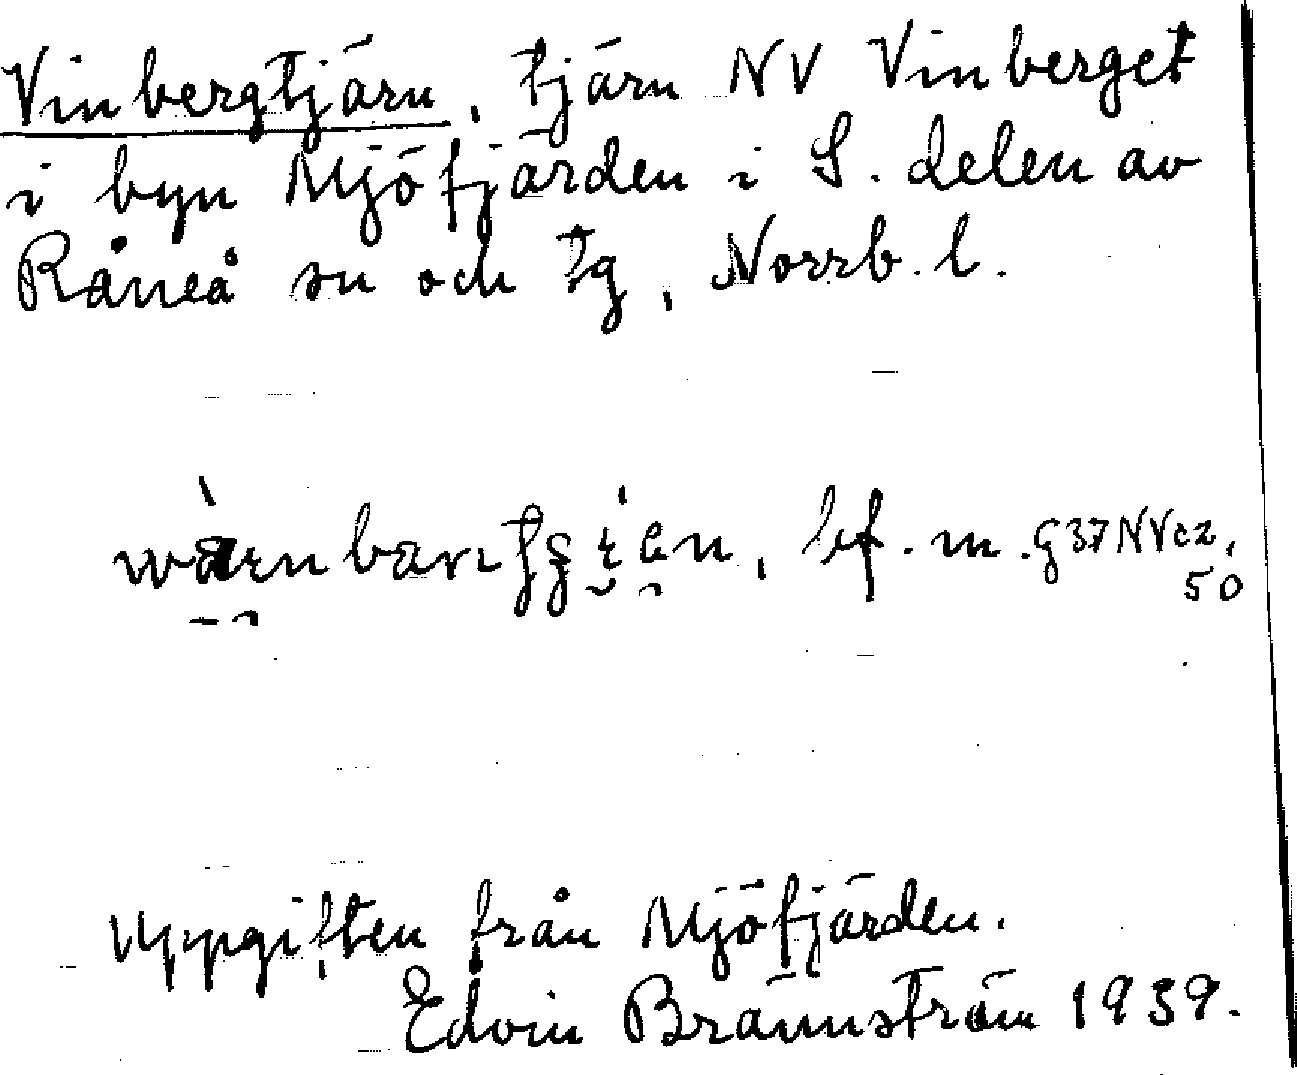 Vinbergtjärn, tjärn NV Vinberget
i byn Mjöfjärden i S. delen av
Råneå sn och tg, Norrb. l.
bf. m. G37NVcz,
50
Uppgiften från Mjöfjärden.
Edvin Brännström 1939.